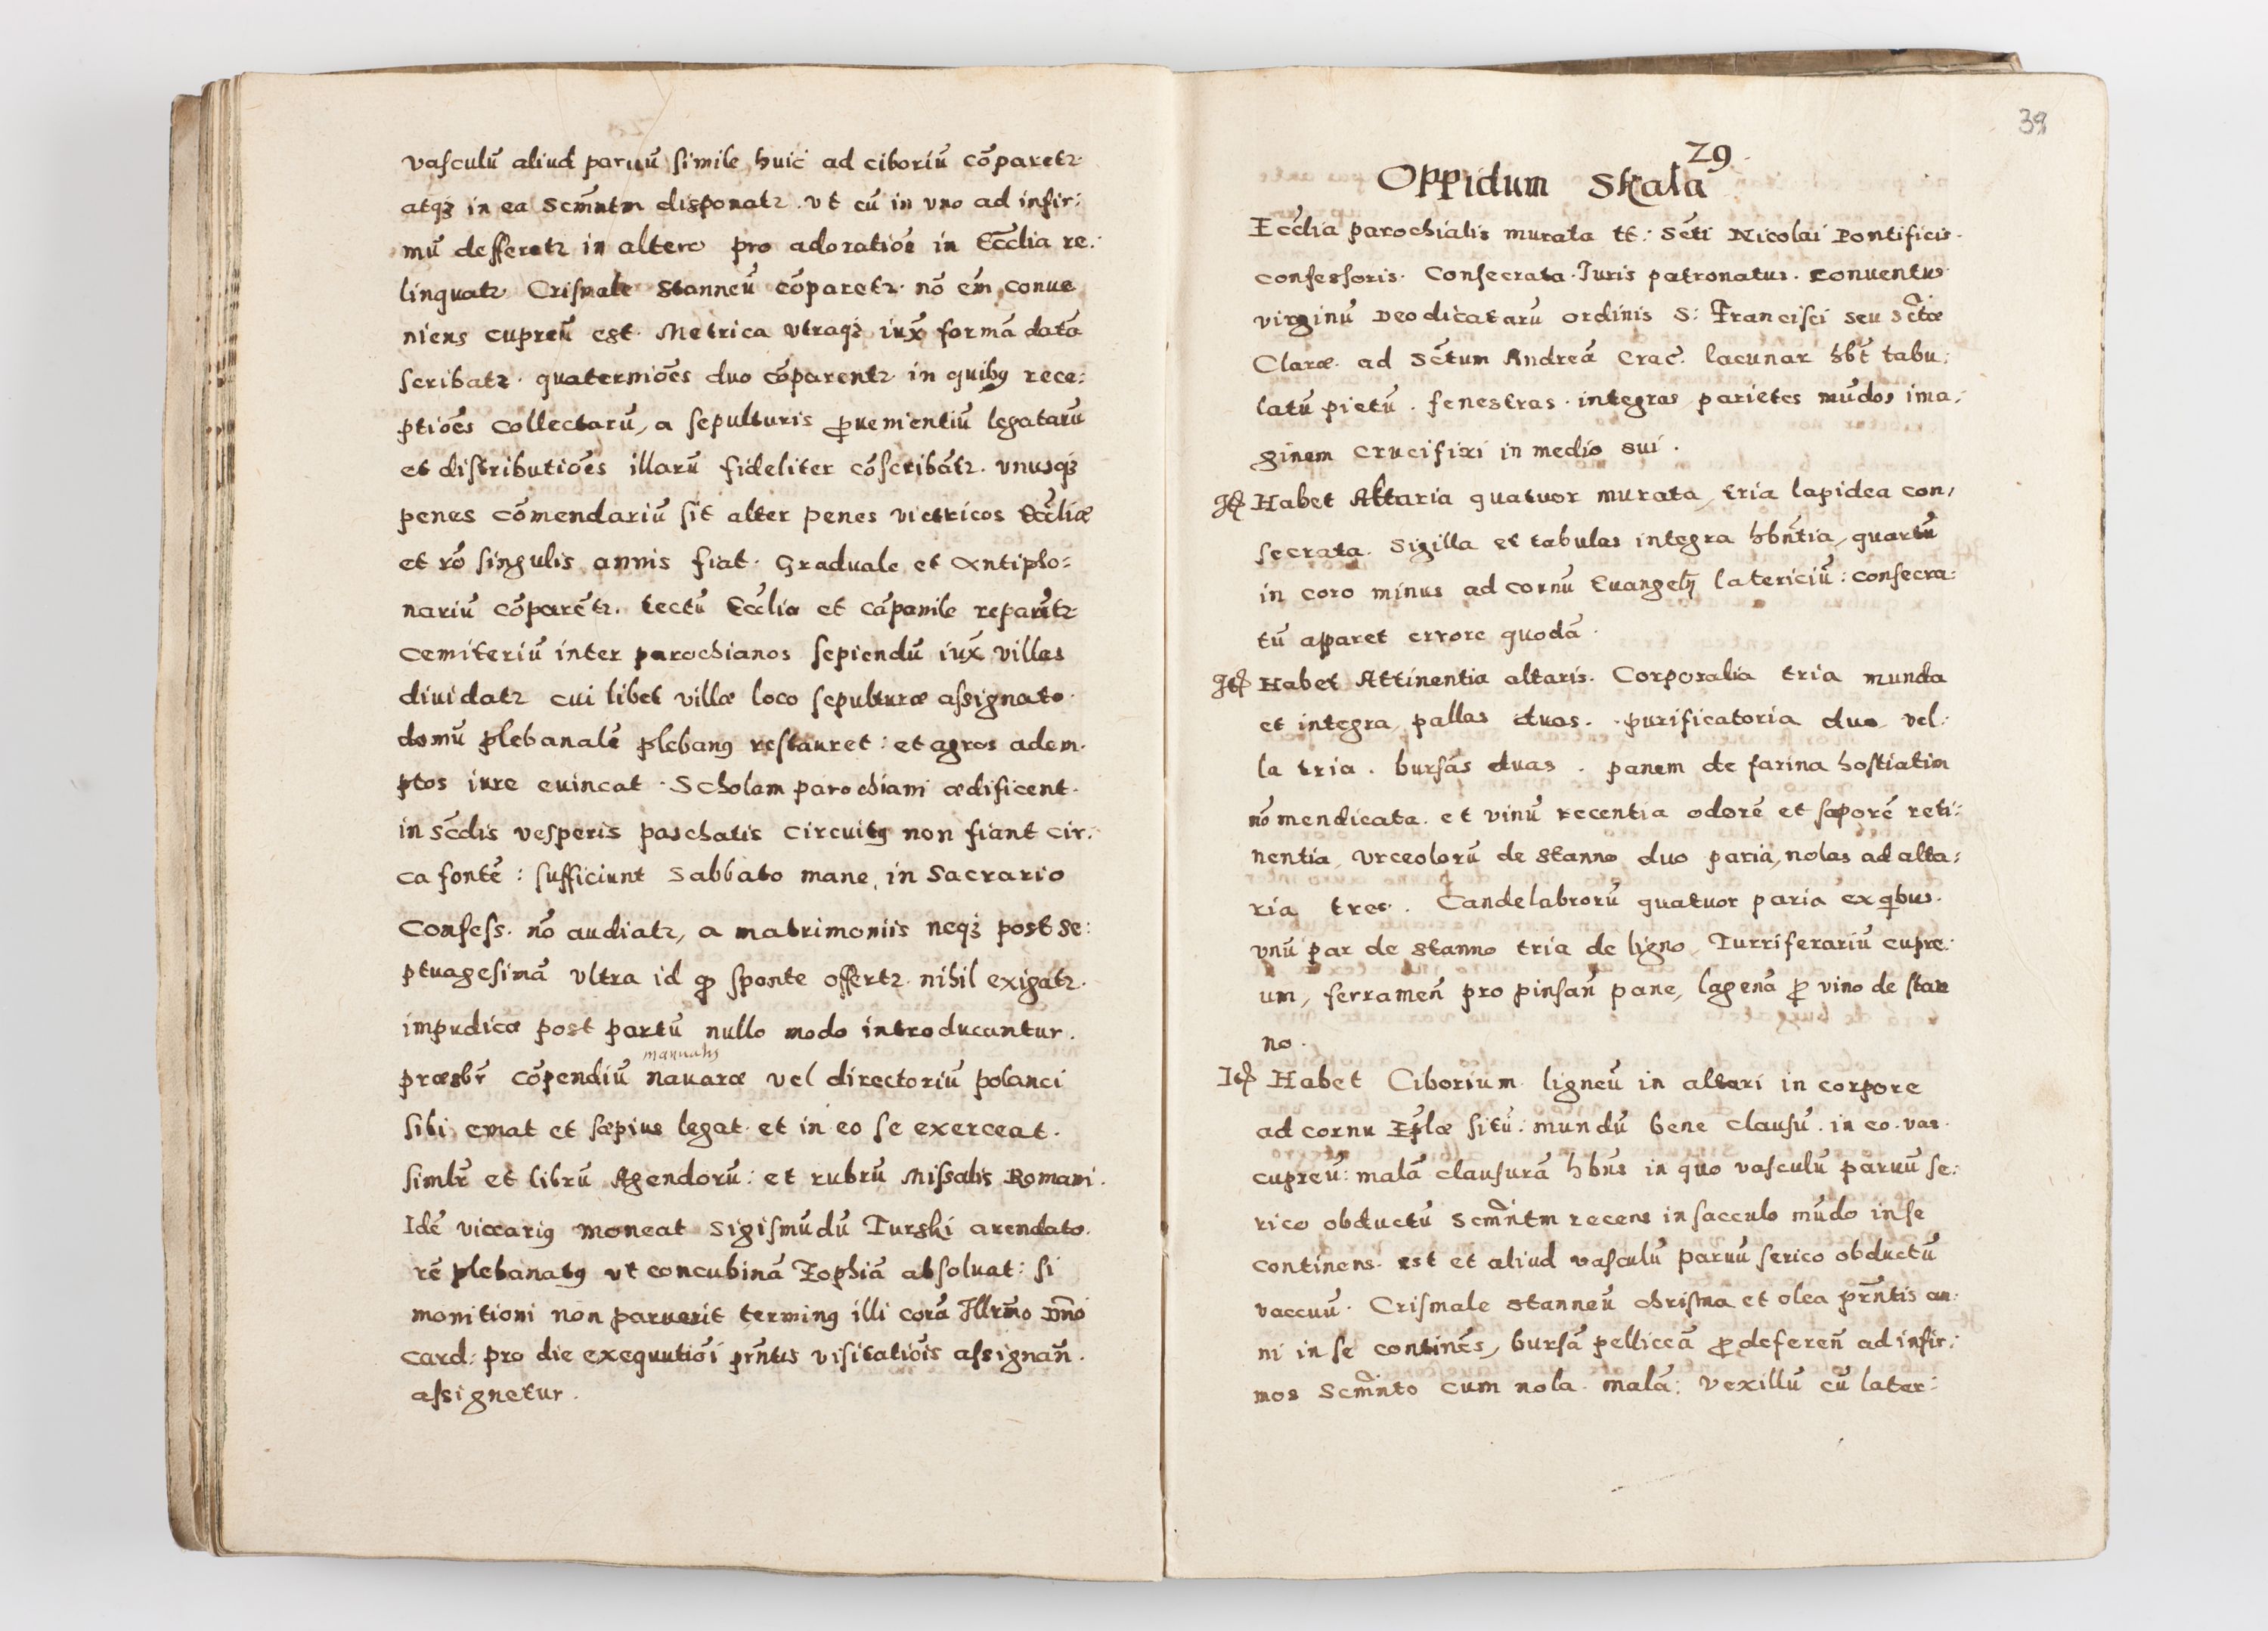 vasculũ aliud paruũ simile huic ad ciboriũ cõparetr
atqꝫ in ea Scm̃ntm disponatr. vt cũ in vno ad infir:
mũ defferetr in altero pro adoratiõe in Eccl̃ia re:
linquatr Crismale Stanneũ cõparetr nõ em̃ conue
niens cupreũ est. Metrica vtraqꝫ iux̃ formã datã
scribatr. quaterniões duo cõparentr in quibꝰ rece:
ptiões collectarũ, a sepulturis ꝓuenientiũ legatarũ
et distributiões illarũ fideliter cõscribãtr. vnusqꝫ
penes cõmendariũ sit alter penes victricos Eccl̃iæ
et rõ singulis annis fiat. Graduale et Antipho:
nariũ cõparẽtr. tectũ Eccl̃ia et cãpanile reparẽtr
Cemiteriũ inter parochianos sepiendũ iux̃ villas
diuidatr cui libet villæ loco sepulturæ assignato.
domũ plebanalẽ plebanꝰ restauret: et agros adem.
ptos iure euincat. Scholam parochiani ædificent.
in Scd̃is vesperis paschatis circuitꝰ non fiant cir:
ca fontẽ: sufficiunt Sabbato mane, in Sacrario
Confess. nõ audiatr, a matrimoniis neqꝫ post se:
ptuagesimã vltra id ꝙ sponte offertr nihil exigatr.
impudicæ post partũ nullo modo introducantur.
manualis
præsbr̃ cõpendiũ nauaræ vel directoriũ polanci
sibi emat et sæpius legat et in eo se exerceat.
siml̃r et librũ Agendorũ: et rubrũ Missalis Romani.
Idẽ viccariꝰ moneat Sigismũdũ Turski arendato.
rẽ plebanatꝰ vt concubinã Zophiã absoluat: si
monitioni non paruerit terminꝰ illi corã Illr̃mo Dño
Card: pro die exequutiõi pr̃ntis visitatiõis assignañ.
assignetur.
39
29.
Oppidum Skala
Eccl̃ia parochialis murata tt: Scti Nicolai Pontificis.
confessoris. Consecrata. Iuris patronatus. conuentus
virginũ Deo dicatarũ ordinis S: Francisci seu Sctæ
Claræ. ad Sctum Andreã Crac. lacunar hbt̃ tabu:
latũ pictũ. fenestras. integras parietes mũdos ima:
ginem crucifixi in medio sui.
Itꝫ Habet Altaria quatuor murata, tria lapidea con,
secrata. Sigilla et tabulas integra hbñtia, quartũ
in coro minus ad cornũ Euangelij latericiũ: consecra:
tũ apparet errore quodã.
Itꝫ Habet Attinentia altaris. Corporalia tria munda
et integra, pallas duas. purificatoria duo vel:
la tria. bursãs duas. panem de farina hostiatim
nõ mendicata. et vinũ recentia odorẽ et saporẽ reti:
nentia, vrceolorũ de Stanno duo paria, nolas ad alta:
ria tres. Candelabrorũ quatuor paria ex qibus.
vnũ par de stanno tria de ligno, Turriferariũ cupre:
um, ferrameñ pro pinsañ pane, lagenã ꝓ vino de stan
no.
Itꝫ Habet Ciborium ligneũ in altari in corpore
ad cornu Ep̃læ sitũ: mundũ bene clausũ. in eo. vas.
cupreũ: malã clausurã hbñs in quo vasculũ paruũ se:
rico obductũ Scm̃ntm recens in sacculo mũdo in se
continens. est et aliud vasculũ paruũ serico obductũ
vaccuũ. Crismale stanneũ chrisma et olea pr̃ntis an:
ni in se continẽs, bursã pelliceã ꝓ defereñ ad infir:
mos Scm̃nto cum nola. malã: vexillũ cũ later: